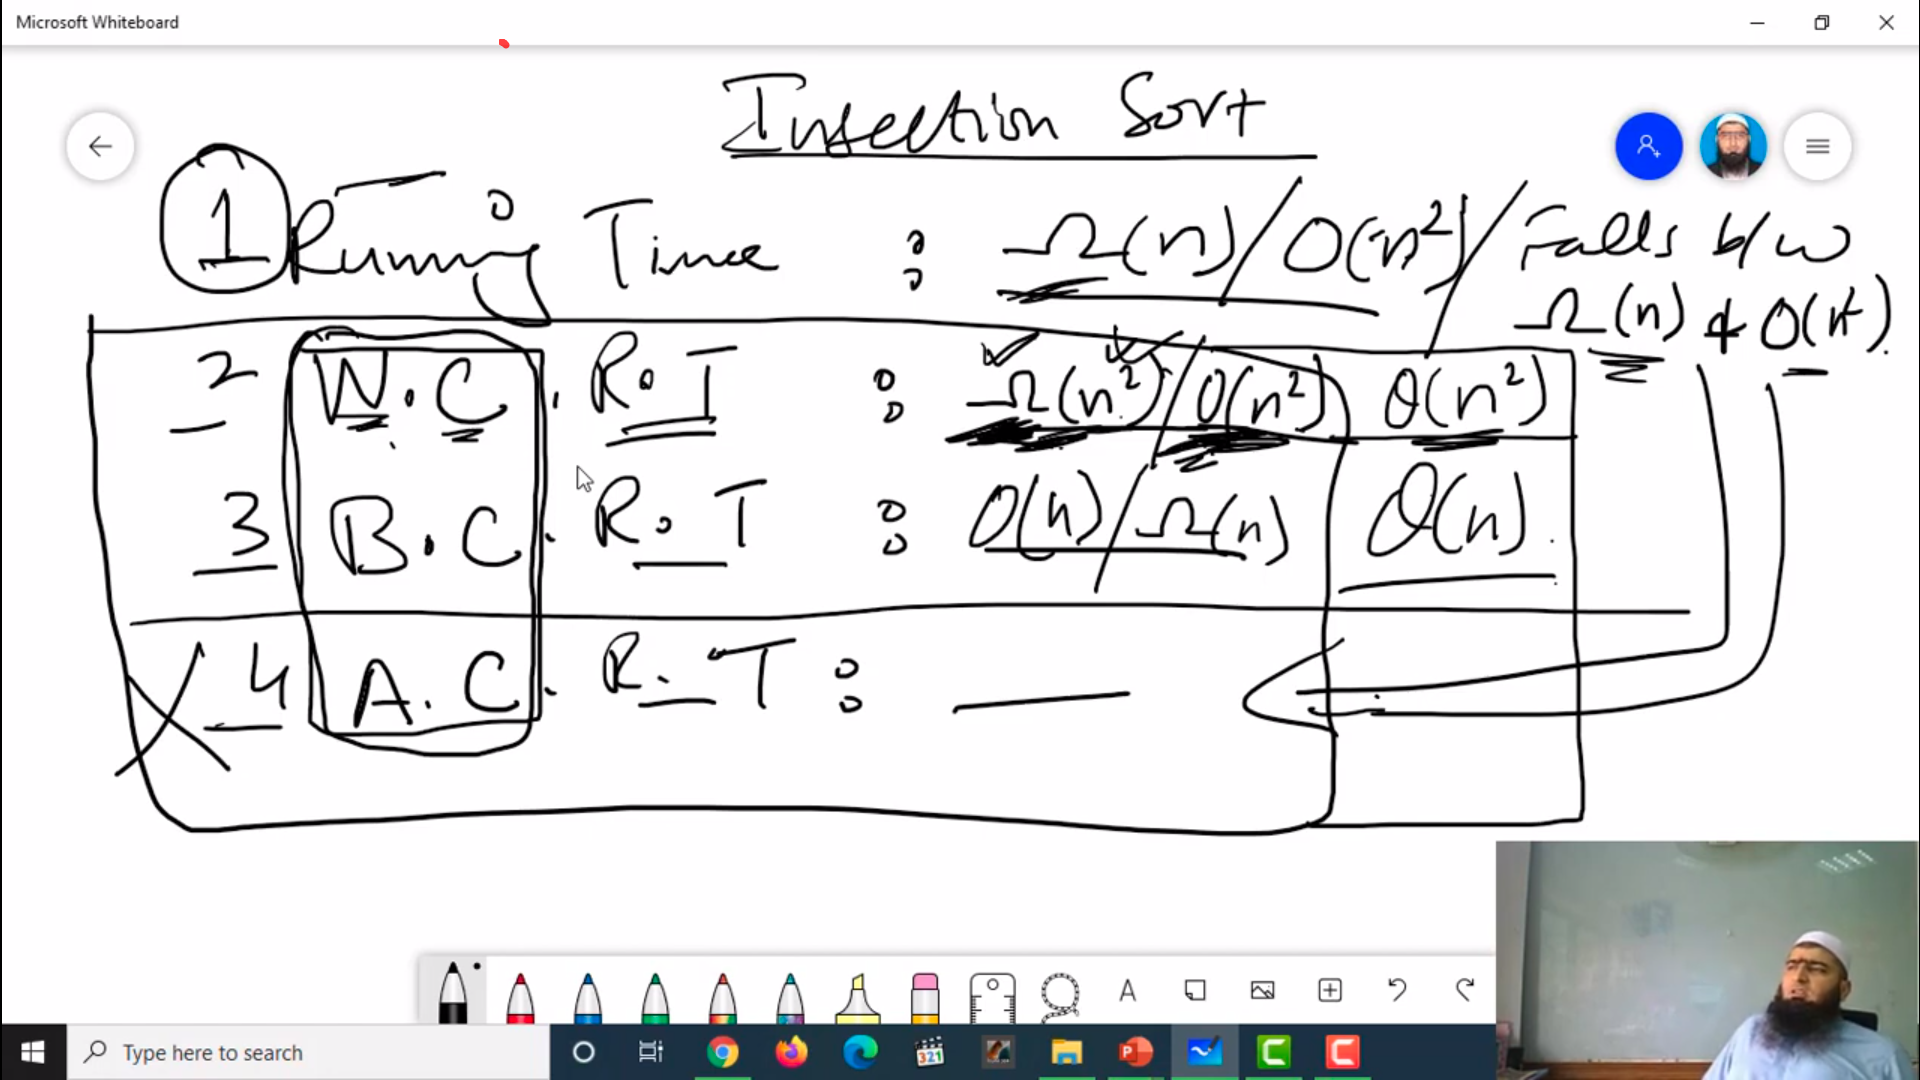 Microsoft Whiteboard
Insertion Sort
1 Running Time : Ω(n) / O(n²) / Falls b/w
Ω(n) & O(n²).
2 W.C. R.T : Ω(n²) / O(n²) θ(n²)
3 B.C. R.T : O(n) / Ω(n) θ(n).
4 A.C. R.T :
A
Type here to search
321